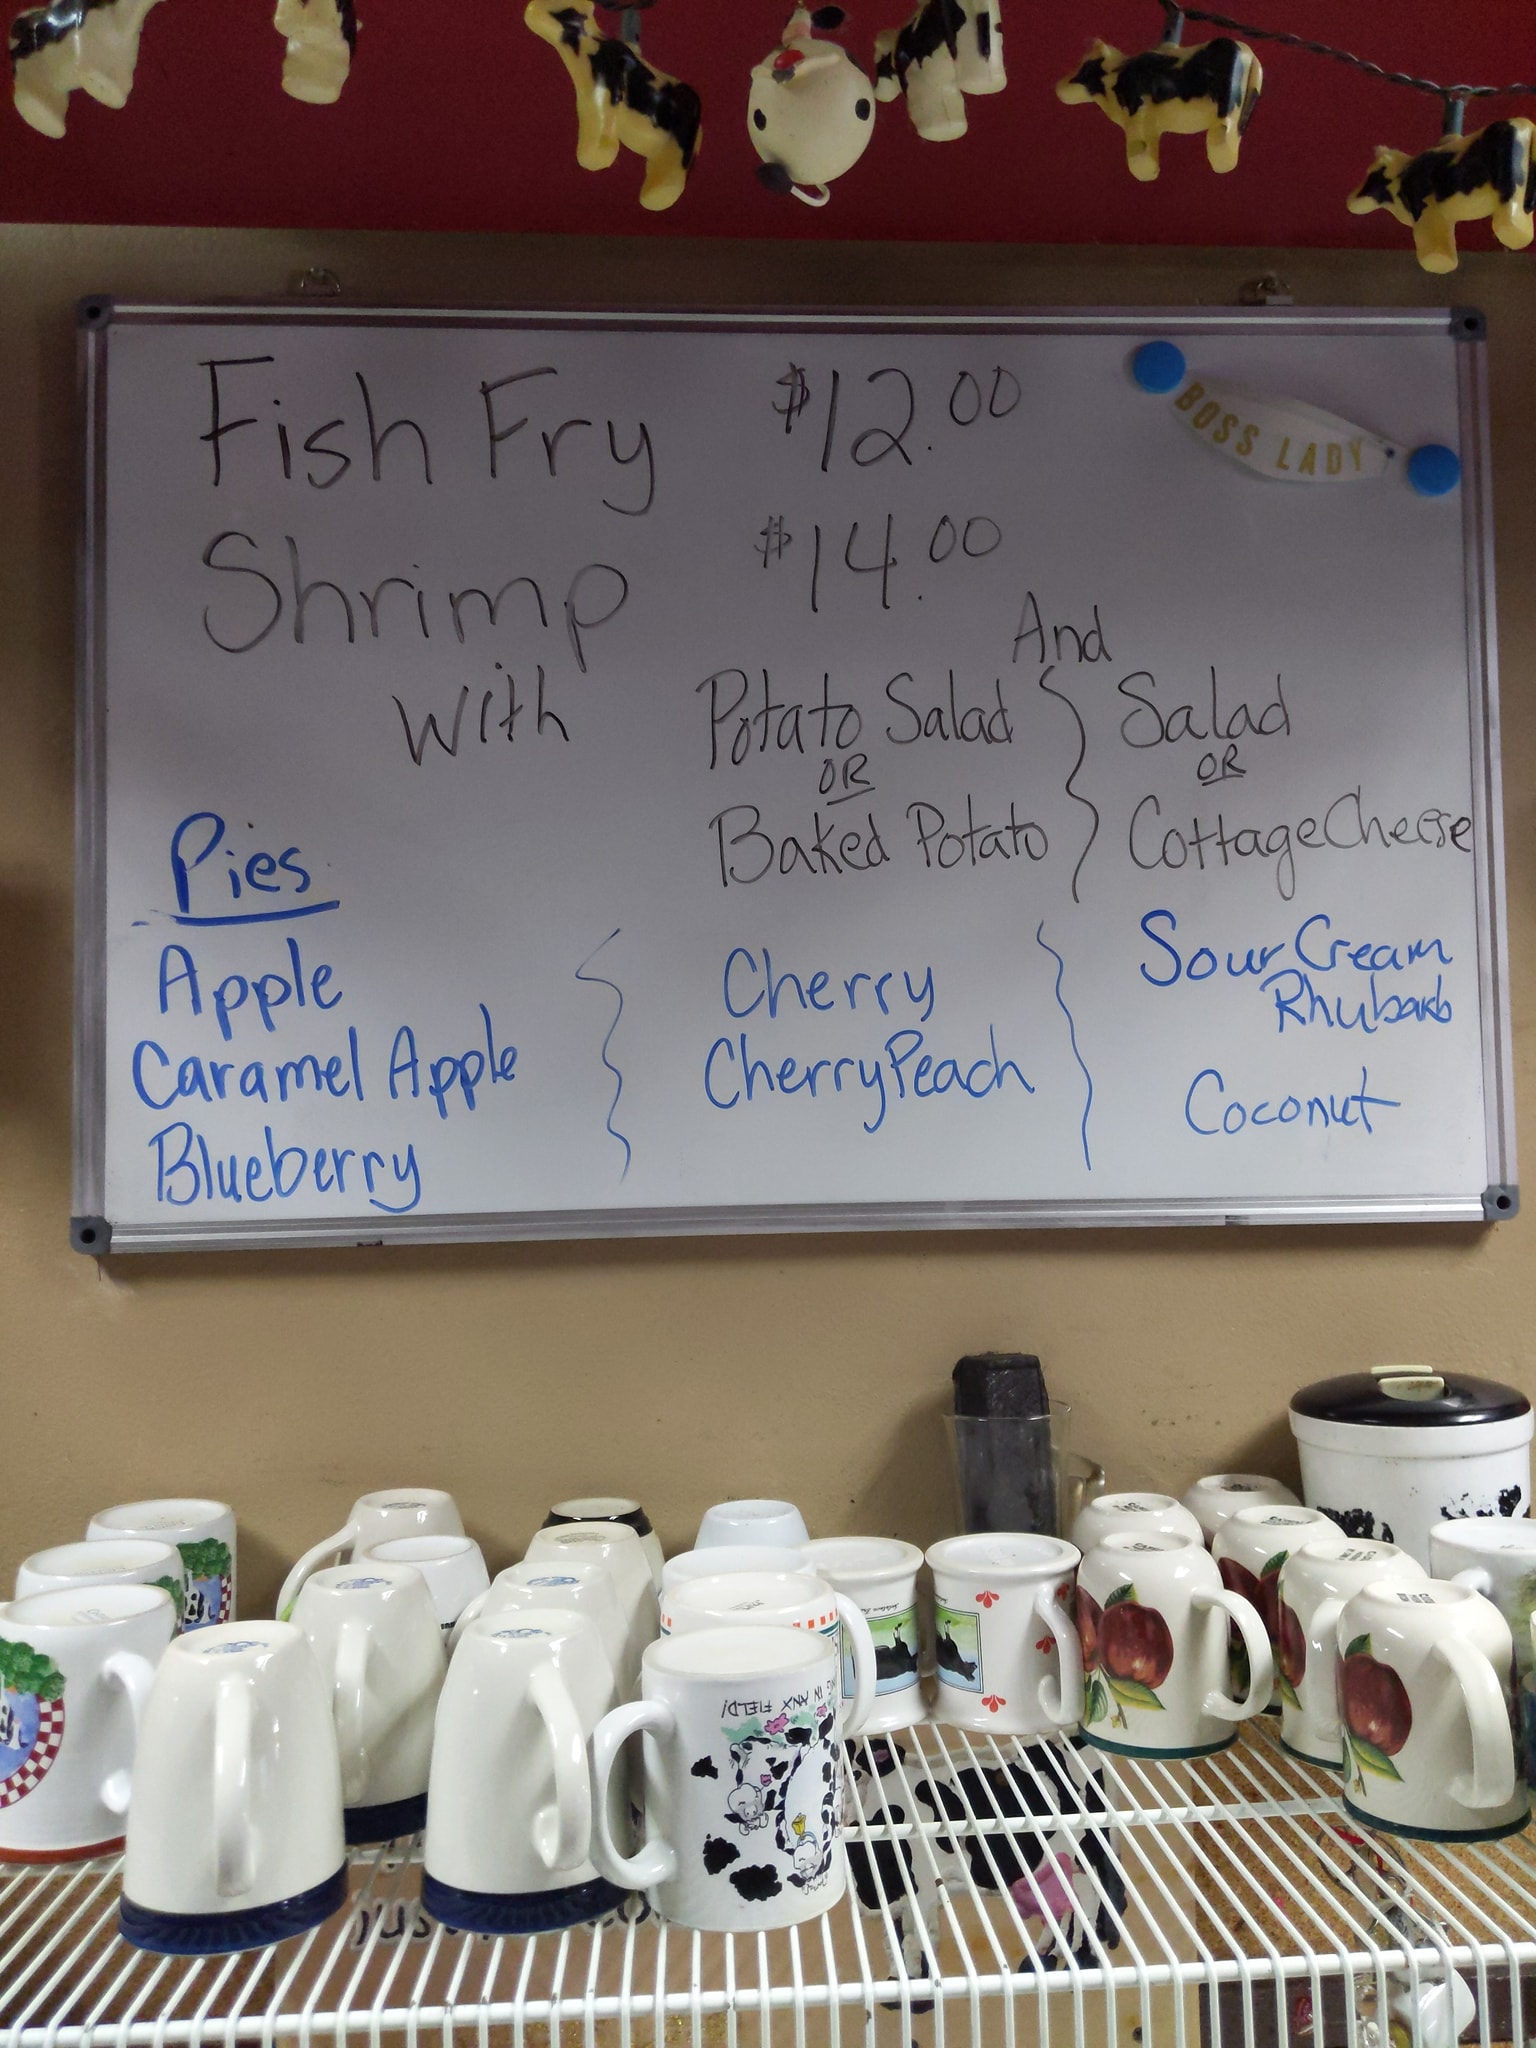 Fish Fry $12.00
BOSS LADY
Shrimp $14.00
And
with Potato Salad Salad
OR OR
Baked Potato Cottage Cheese
Pies
Apple Cherry Sour Cream
Rhubarb
Caramel Apple Cherry Peach
Coconut
Blueberry
IN ANX
FIELD!